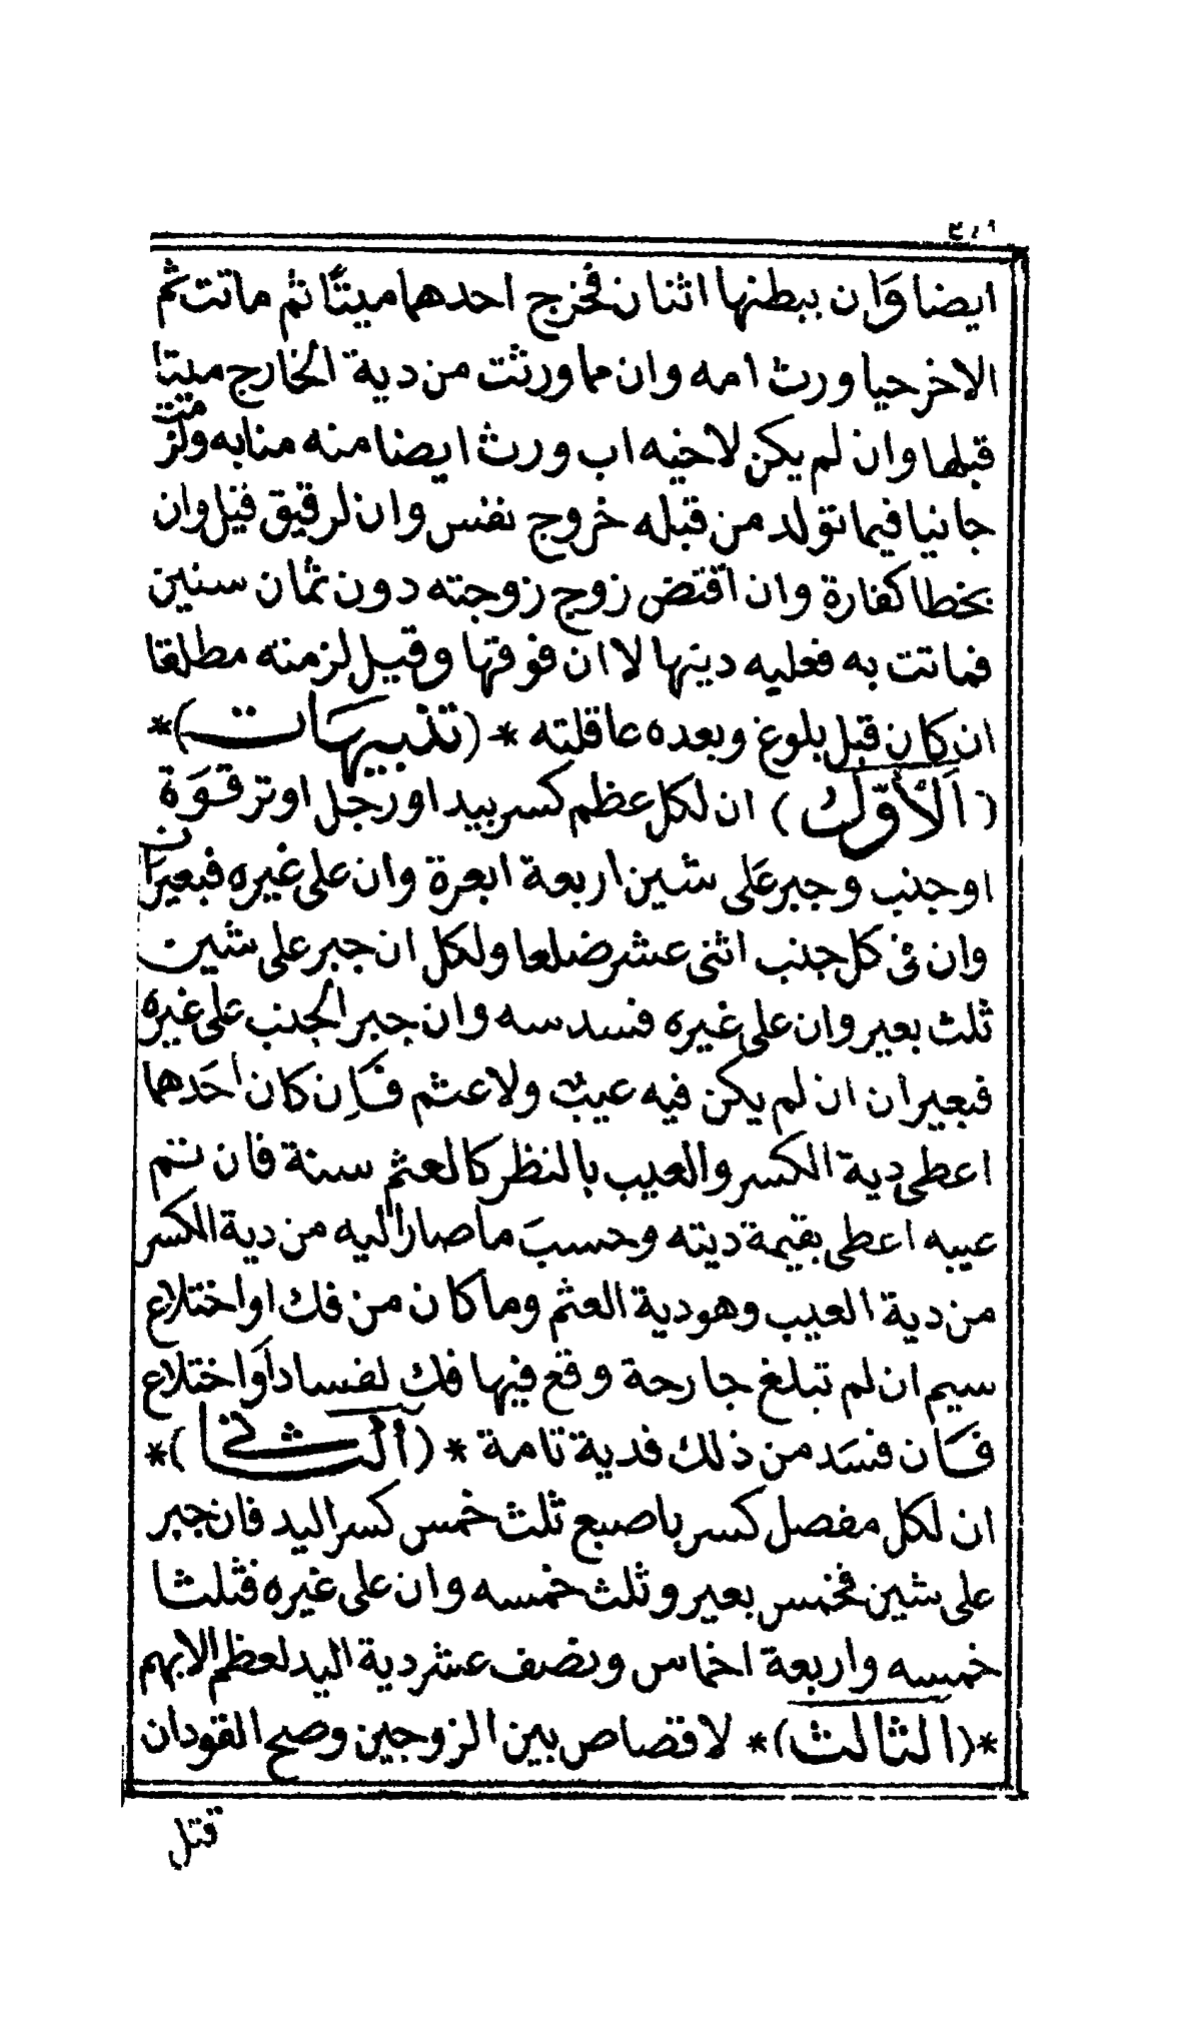 ايضا وَان ببطنها اثنان فخرج احدهما ميتًا ثم ماتت ثم
الاخر حيا ورث امه وان مما ورثت من دية الخارج ميتا
قبلها وان لم يكن لاخيه اب ورث ايضا منه منابه ولزمت
جانيا فيما تولد من قبله خروج نفس وان لرقيق قيل وان
بخطا كفارة وان اقتض زوج زوجته دون ثمان سنين
فماتت به فعليه ديتها لا ان فوقها وقيل لزمته مطلقا
ان كان قبل بلوغ وبعده عاقلته * (تنبيهات) *
(اَلأوّل) ان لكل عظم كسر بيد اورجل اوترقوَة
اوجنب وجبر عَلى شين اربعة ابعرة وان على غيره فبعيرَان
وان فى كل جنب اثنى عشر ضلعا ولكل ان جبر على شين
ثلث بعير وان على غيره فسدسه وان جبر الجنب على غيره
فبعيران ان لم يكن فيه عيبٌ ولا عثم فَاِن كان احَدهما
اعطى دية الكسر والعيب بالنظر كالعثم سنة فان تم
عيبه اعطى بقيمة ديته وحسبَ ما صار اليه من دية الكسر
من دية العيب وهو دية العثم وما كان من فك اواختلاع
سيم ان لم تبلغ جارحة وقع فيها فك لفساد اَواختلاع
فَان فسَد من ذلك فدية تامة * (اَلثانى) *
ان لكل مفصل كسر باصبع ثلث خمس كسر اليد فان جبر
على شين فخمس بعير وثلث خمسه وان على غيره فثلثا
خمسه واربعة اخماس ونصف عشر دية اليد لعظم الابهم
* (الثالث) * لا قصاص بين الزوجين وصح القود ان
قتل